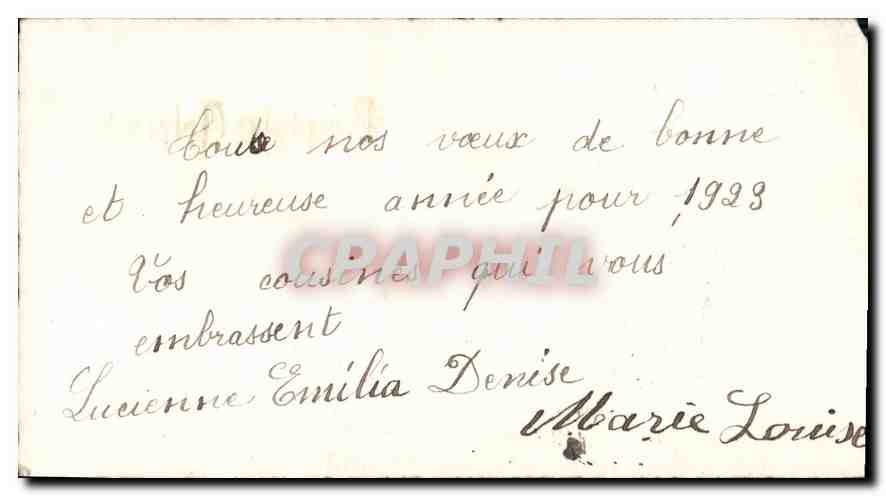 Toute nos vœux de bonne
et heureuse année pour 1923
Vos cousines qui vous
embrassent
Lucienne Emilia Denise
Marie Louise
CPAPHIL